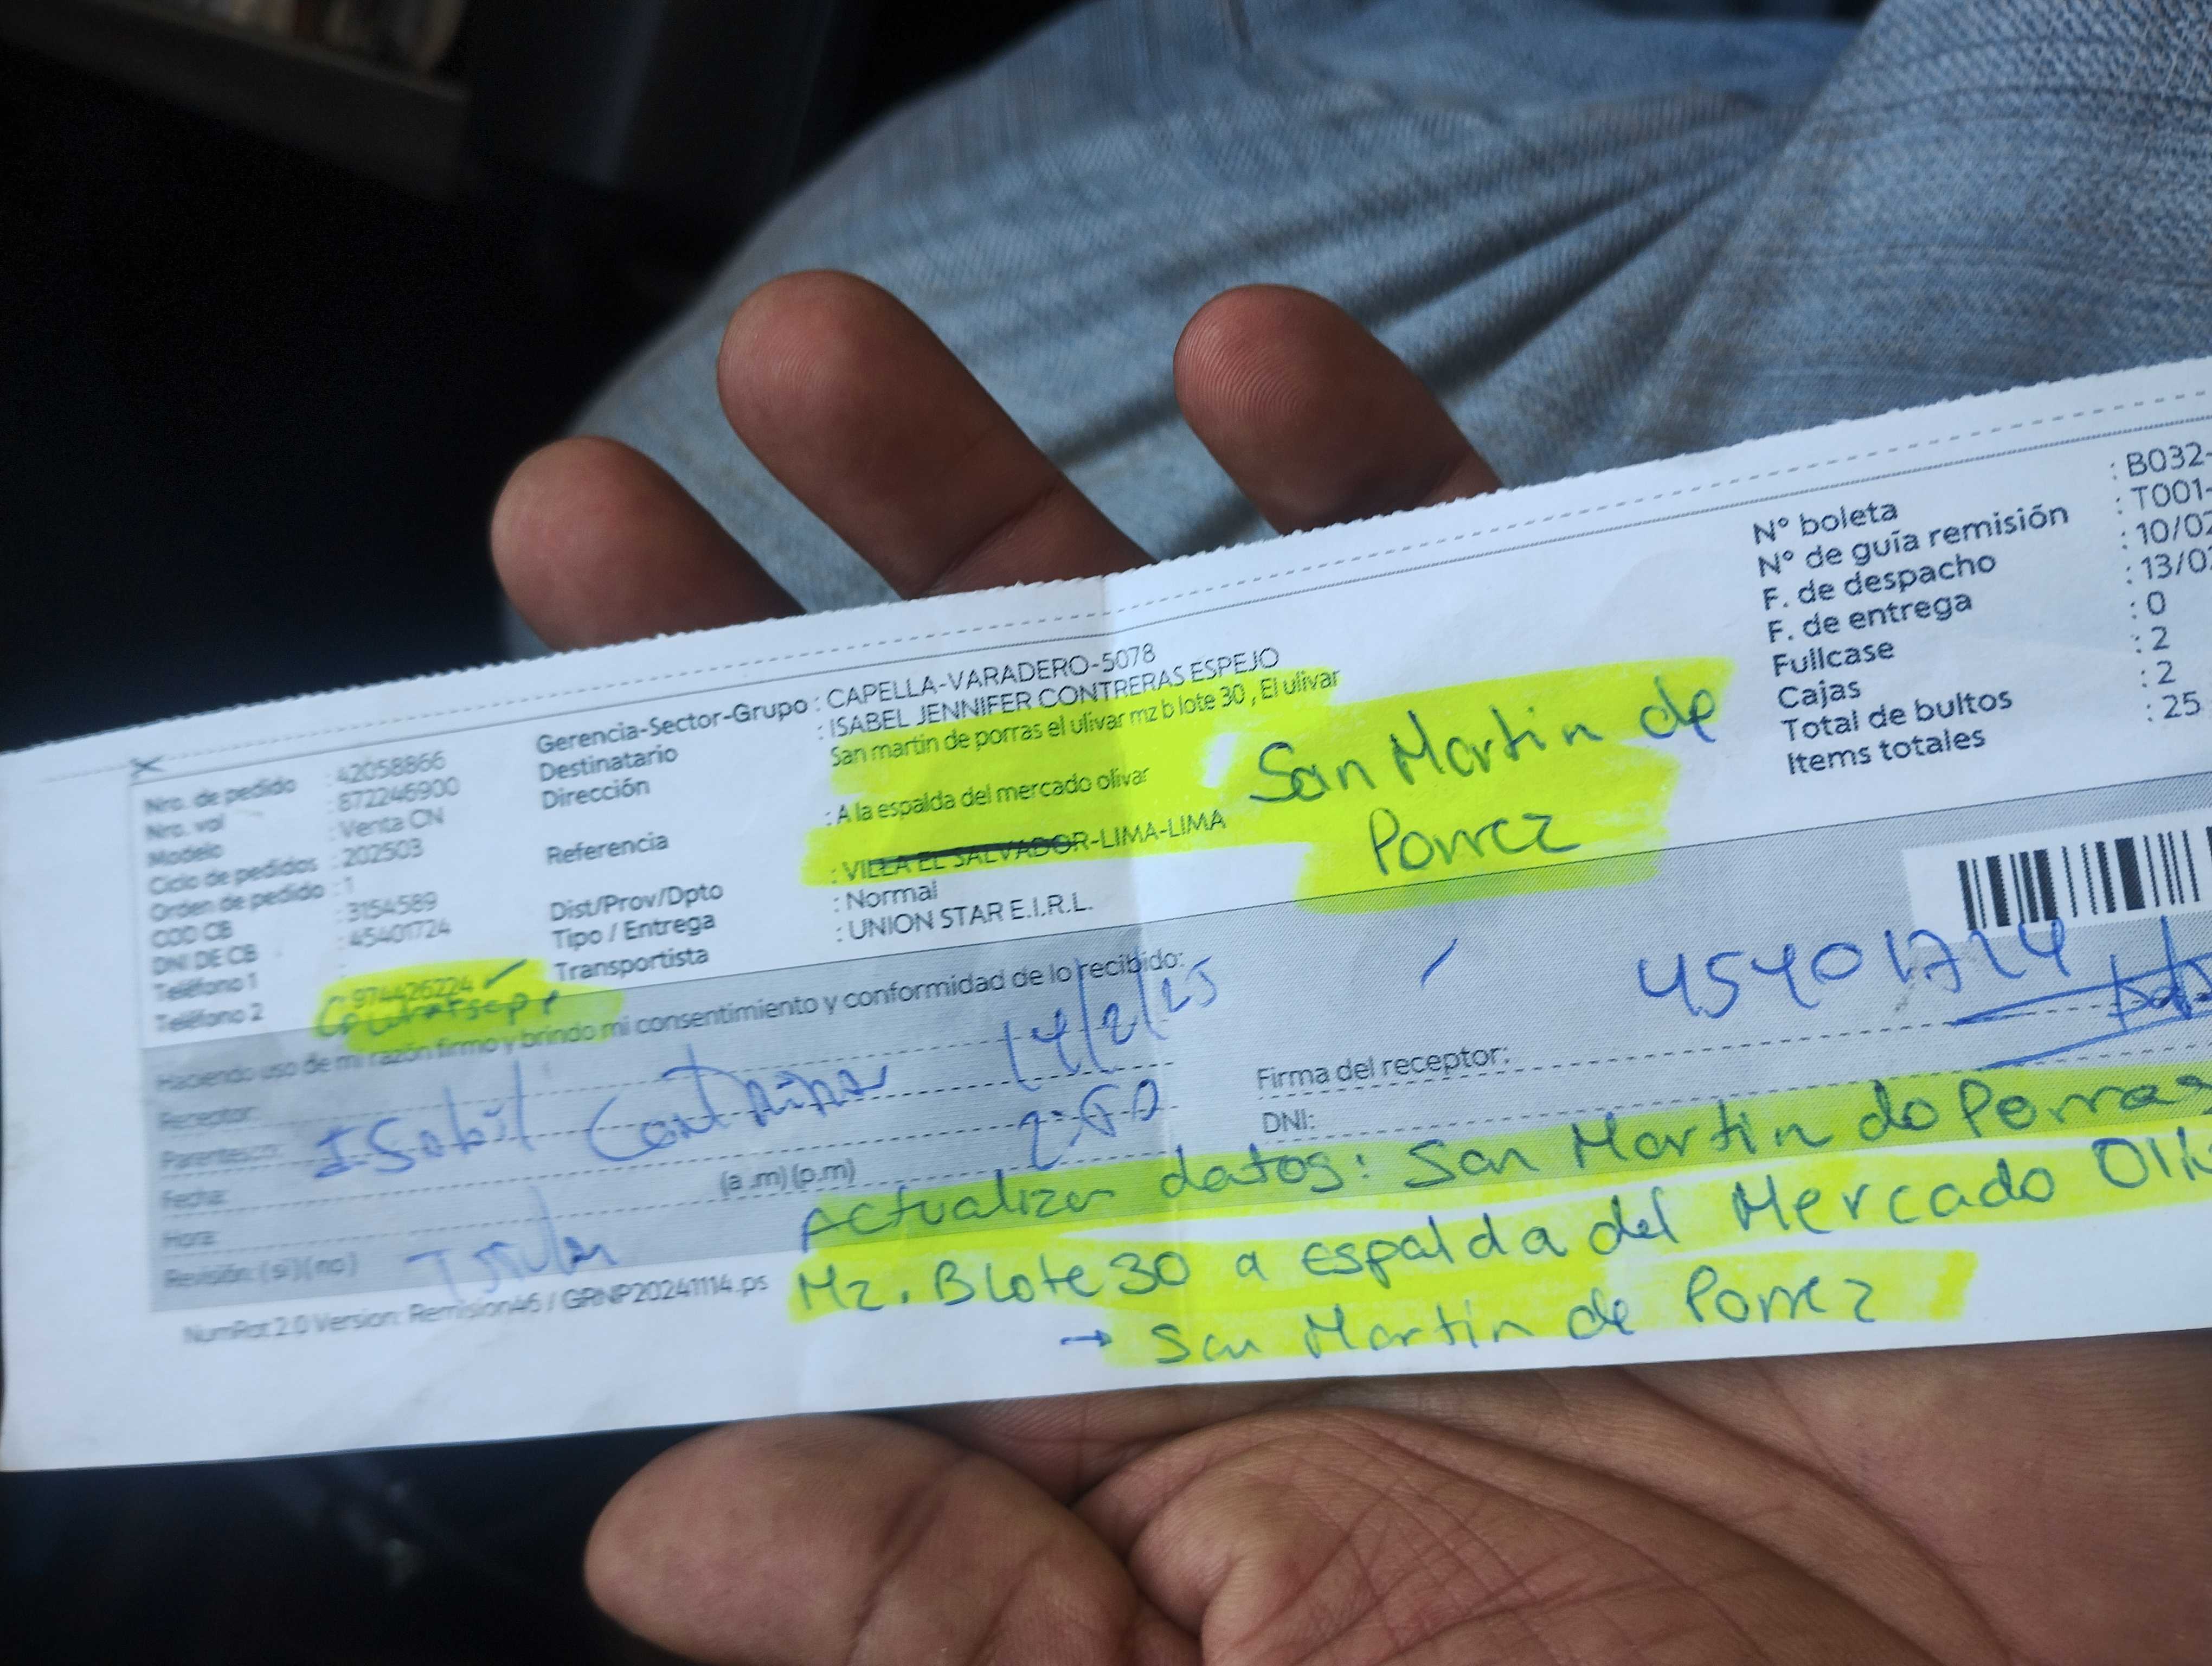 Nro. de pedido : 42058866
Nro. vol : 872246900
Modelo : Venta CN
Ciclo de pedidos : 202503
Orden de pedido : 1
COD CB : 3154589
DNI DE CB : 45401724
Teléfono 1 :
Teléfono 2 : 974426224 ✓
whatsapp
Gerencia-Sector-Grupo : CAPELLA-VARADERO-5078
Destinatario : ISABEL JENNIFER CONTRERAS ESPEJO
Dirección San martin de porras el ulivar mz b lote 30 , El ulivar
Referencia : A la espalda del mercado olivar
Dist/Prov/Dpto : VILLA EL SALVADOR-LIMA-LIMA
Tipo / Entrega : Normal
Transportista : UNION STAR E.I.R.L.
San Martin de
Porrez
N° boleta : B032-
N° de guía remisión : T001-
F. de despacho : 10/02
F. de entrega : 13/0
Fullcase : 0
Cajas : 2
Total de bultos : 2
Items totales : 25
Haciendo uso de mi razón firmo y brindo mi consentimiento y conformidad de lo recibido:
Receptor:
Parentesco:
Fecha:
Hora: (a .m) (p.m)
Revisión: ( si ) ( no )
14/2/25
Firma del receptor:
DNI:
45401724
Actualizar datos: San Martin de Porras
Mz. B lote 30 a espalda del Mercado
→ San Martin de Porrez
NumRot 2.0 Version: Remision46 / GRNP20241114.ps